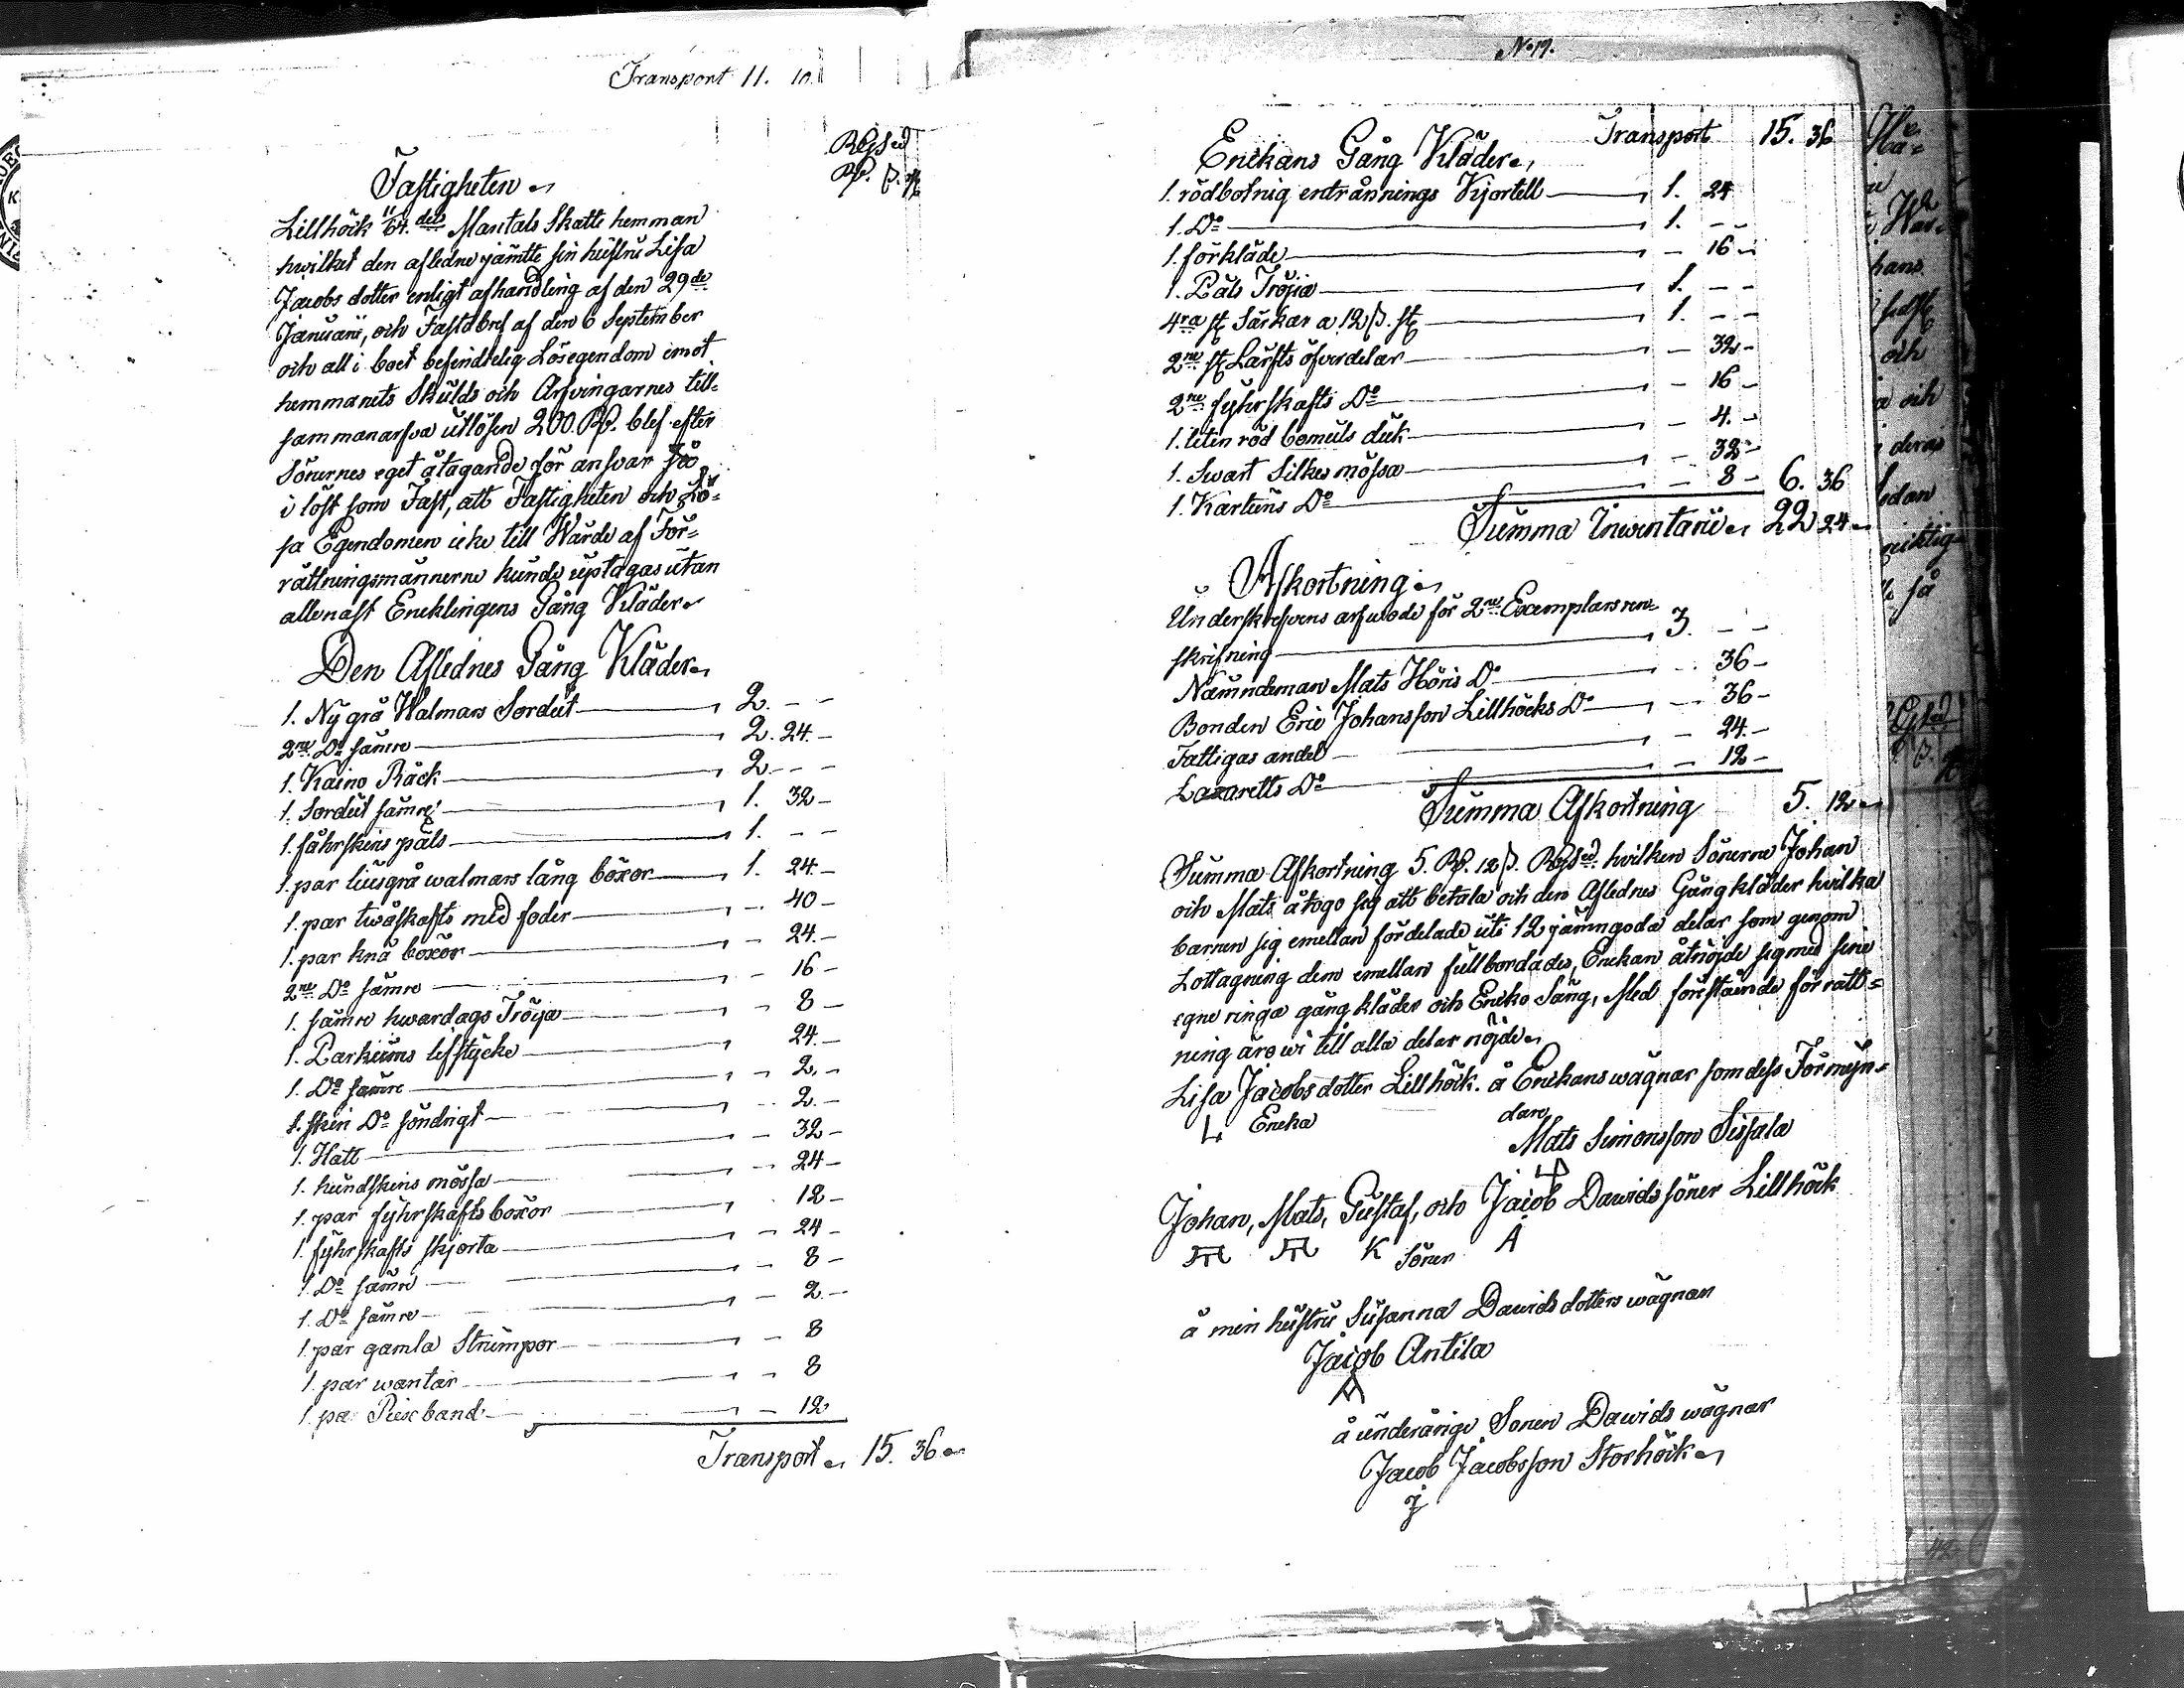 Transport 11. 10.
RGSed
Rp. ß. rst
Fastigheten
Lillhöik 11/64.dels Mantals Skatte hemman
hwilket den afledne jämtte sin hustru Lisa
Jacobs dotter enligt afhandling af den 29de
Januarii, och Fastebref af den 6 September
och all i boet befindtelig Lösegendom emot
hemmanets Skulds och Arfvingarnes till=
sammanarfva utlösen 200. Rp. blef efter
Sönernes eget åtagande för ansvar så
i löst som Fast, att Fastigheten och Lö=
sa Egendomen icke till Wärde af För=
rättningsmännerne kunde uptagas utan
allenast Encklingens Gång Kläder
Den Aflednes Gång Kläder
1. Ny grå Walmars Sordut 2. - -
2ne Do sämre 2. 24. -
1. Kaino Räck 2. - -
1. Sordut sämre 1. 32 -
1. fåhrskins päls 1. - -
1. par liusgrå walmars lång böxor 1. 24. -
1. par twåskafts med foder - 40 -
1. par knä boxor - 24. -
2ne Do sämre - 16 -
1. sämre hwardags Tröya - 8 -
1. Parkums lifstycke - 24. -
1. Do sämre - 2. -
1. skin Do söndrigt - 2. -
1. Hatt - 32 -
1. hundskins mössa - 24 -
1. par fyhrskafts boxor - 12 -
1. fyhrskafts skjorta - 24 -
1. Do sämre - 8 -
1. Do sämre - 2. -
1. par gamla Strumpor - 8
1. par wantar - 8
1. pa Piexband - 12
Transport 15. 36
No 17.
Transport 15. 36
Enckans Gång Kläder
1. rödbotnig entrånnings Kjortell 1. 24
1. Do 1. - -
1. förkläde - 16 -
1. Päls Tröjia 1. - -
4ra st Särkar a 12 ß. st 1. - -
2ne st Lärfts öfverdelar - 32 -
2ne fyhrskafts Do - 16 -
1. liten röd bomuls duk - 4. -
1. Swart Silkes mössa - 32 -
1. Kartuns Do - 8 - 6. 36
Summa Inventarii 22 24
Afkortning
Underskrefvens arfwode för 2ne Exemplars ren=
skrifning 3. - -
Nämndeman Mats Höris Do - 36 -
Bonden Eric Johansson Lillhöcks Do - 36 -
Fattigas andel - 24. -
Lazaretts Do - 12 -
Summa Afkortning 5. 12
Summa Afkortning 5. Rp. 12 ß. RGSed. hwilken Sönerne Johan
och Mats åtogo sig att betala och den Aflednes Gångkläder hvilka
barnen sig emellan fördelade uti 12 jämngoda delar som genom
Lottagning dem emellan fullbordades, Enckan åtnöjde sig med sine
egne ringa gång kläder och Encke Säng, Med förestående förrätt=
ning äro wi till alla delar nöjde
Lisa Jacobs dotter Lillhöik. å Enckans wägnar som dess Förmyn=
Encka dare
Mats Simonsson Sissala
Johan, Mats, Gustaf, och Jacob Davids söner Lillhöik
K Söner A
å min hustru Susanna Davids dotters wägnar
Jacob Antila
å underårige Sonen Dawids wägnar
Jacob Jacobsson Storhöik
J